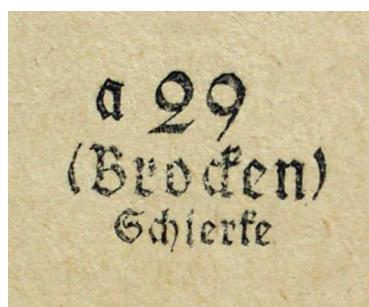 a 29
(Brocken)
Schierke